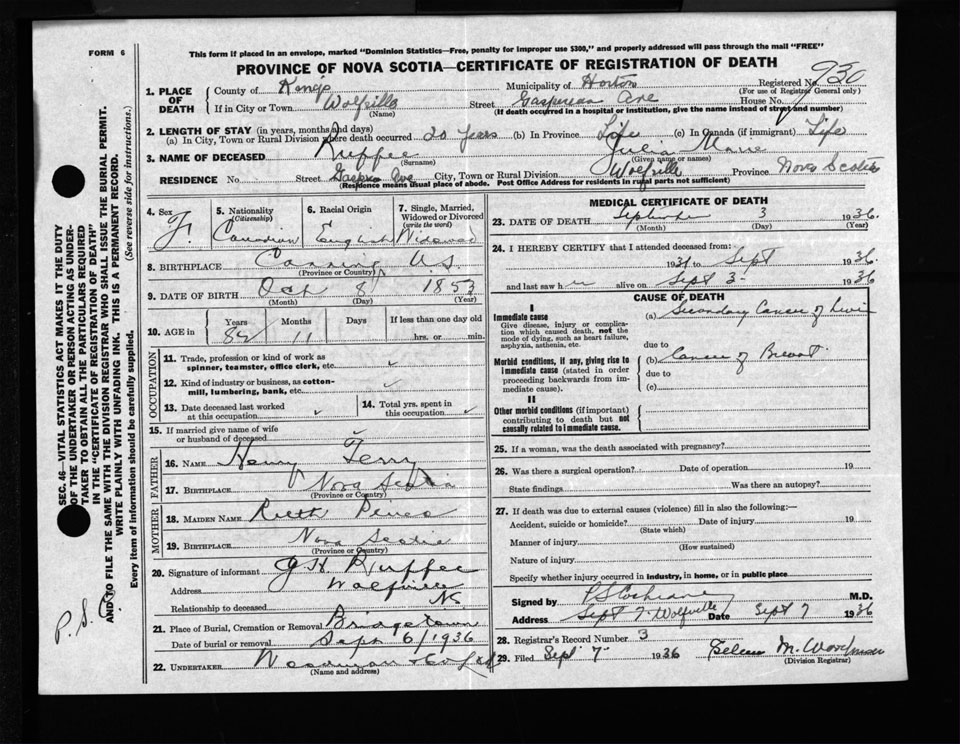 FORM 6
This form if placed in an envelope, marked "Dominion Statistics—Free, penalty for improper use $300," and properly addressed will pass through the mail "FREE"
PROVINCE OF NOVA SCOTIA—CERTIFICATE OF REGISTRATION OF DEATH
Registered No. 930
(For use of Registrar General only)
1. PLACE OF DEATH
County of King's Municipality of Horton
If in City or Town Wolfville Street Gaspereau Ave House No.
(Name) (If death occurred in a hospital or institution, give the name instead of street and number)
2. LENGTH OF STAY (in years, months and days)
(a) In City, Town or Rural Division where death occurred 20 years (b) In Province Life (c) In Canada (if immigrant) Life
3. NAME OF DECEASED Ruffee Julia Marie
(Surname) (Given name or names)
RESIDENCE No. Street Ave City, Town or Rural Division Wolfville Province Nova Scotia
(Residence means usual place of abode. Post Office Address for residents in rural parts not sufficient)
4. Sex F.
5. Nationality (Citizenship) Canadian
6. Racial Origin English
7. Single, Married, Widowed or Divorced (write the word) Widowed
8. BIRTHPLACE Canning N.S.
(Province or Country)
9. DATE OF BIRTH Oct 8 1853
(Month) (Day) (Year)
10. AGE in Years 82 Months 11 Days If less than one day old hrs. or min.
OCCUPATION
11. Trade, profession or kind of work as spinner, teamster, office clerk, etc. ✓
12. Kind of industry or business, as cotton-mill, lumbering, bank, etc. ✓
13. Date deceased last worked at this occupation ✓
14. Total yrs. spent in this occupation ✓
15. If married give name of wife or husband of deceased
FATHER
16. NAME Henry Terry
17. BIRTHPLACE Nova Scotia
(Province or Country)
MOTHER
18. MAIDEN NAME Ruth
19. BIRTHPLACE Nova Scotia
(Province or Country)
20. Signature of informant J H Ruffee
Address Wolfville
Relationship to deceased
21. Place of Burial, Cremation or Removal Bridgetown
Date of burial or removal Sept 6/1936
22. UNDERTAKER Woodman & Co Ltd
(Name and address)
MEDICAL CERTIFICATE OF DEATH
23. DATE OF DEATH September 3 1936.
(Month) (Day) (Year)
24. I HEREBY CERTIFY that I attended deceased from:
1931 to Sept 1936
and last saw her alive on Sept 3 1936
CAUSE OF DEATH
I
Immediate cause
Give disease, injury or complication which caused death, not the mode of dying, such as heart failure, asphyxia, asthenia, etc.
(a) Secondary Cancer of Liver
due to
Morbid conditions, if any, giving rise to immediate cause (stated in order proceeding backwards from immediate cause).
(b) Cancer of Breast.
due to
(c)
II
Other morbid conditions (if important) contributing to death but not causally related to immediate cause.
25. If a woman, was the death associated with pregnancy?
26. Was there a surgical operation? Date of operation 19
State findings Was there an autopsy?
27. If death was due to external causes (violence) fill in also the following:—
Accident, suicide or homicide? Date of injury 19
(State which)
Manner of injury
(How sustained)
Nature of injury
Specify whether injury occurred in industry, in home, or in public place
Signed by P S Cochrane M.D.
Address Sept 7 Wolfville Date Sept 7 1936
28. Registrar's Record Number 3
29. Filed Sept 7 1936 Helen M. Woodman
(Division Registrar)
SEC. 46—VITAL STATISTICS ACT MAKES IT THE DUTY
OF THE UNDERTAKER OR PERSON ACTING AS UNDER-
TAKER TO OBTAIN ALL THE PARTICULARS REQUIRED
IN THE "CERTIFICATE OF REGISTRATION OF DEATH"
AND TO FILE THE SAME WITH THE DIVISION REGISTRAR WHO SHALL ISSUE THE BURIAL PERMIT.
WRITE PLAINLY WITH UNFADING INK. THIS IS A PERMANENT RECORD.
Every item of information should be carefully supplied. (See reverse side for instructions.)